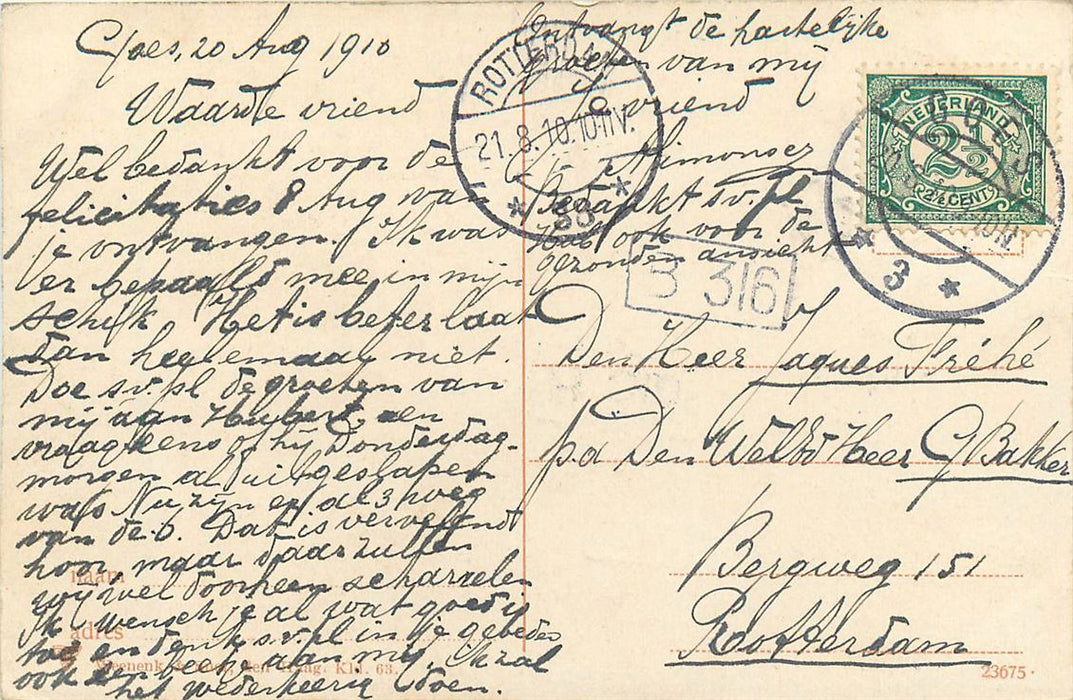 Goes, 20 Aug 1910
Waarde vriend
Wel bedankt voor de
felicitaties 8 Aug van
je ontvangen. Ik was
er bepaald mee in mijn
schik. Het is beter laat
dan heelemaal niet.
Doe s.v.pl de groeten van
mij aan Hubert, en
vraag eens of hij Donderdag-
morgen al uitgeslapen
was. Nu zijn er al 3 weg
van de 6. Dat is vervelend
hoor, maar daar zullen
wij wel doorheen scharrelen
Ik wensch je al wat goed is
toe en denk s.v.pl in je gebeden
ook een beetje aan mij. Ik zal
het wederkeerig doen.
Ontvangt de hartelijke
groeten van mij
je vriend
Bedankt s.v.pl
ook voor de
gezonden ansicht
ROTTERDAM
21.8.10.10-11V.
NEDERLAND
2½
2½ CENT
GOES
3
B 316
Den Heer Jaques Fréhé
p.a Den WelEd Heer G Bakker
Bergweg 151
Rotterdam
naam
adres
Weenenk &amp; Snel, Den Haag. Kld. 63.
23675